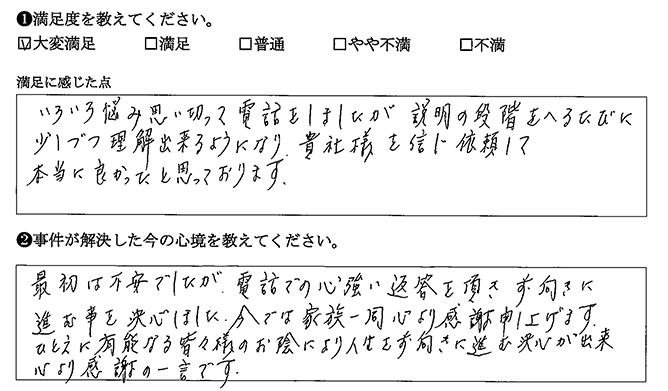 ❶満足度を教えてください。
☑大変満足 □満足 □普通 □やや不満 □不満
満足に感じた点
いろいろ悩み思い切って電話をしましたが 説明の段階をへるたびに
少しづつ理解出来るようになり、貴社様を信じ依頼して
本当に良かったと思っております。
❷事件が解決した今の心境を教えてください。
最初は不安でしたが、電話での心強い返答を頂き 前向きに
進む事を決心しました。今では家族一同心より感謝申し上げます。
ひとえに有能なる皆々様のお陰により人生を前向きに進む決心が出来
心より感謝の一言です。